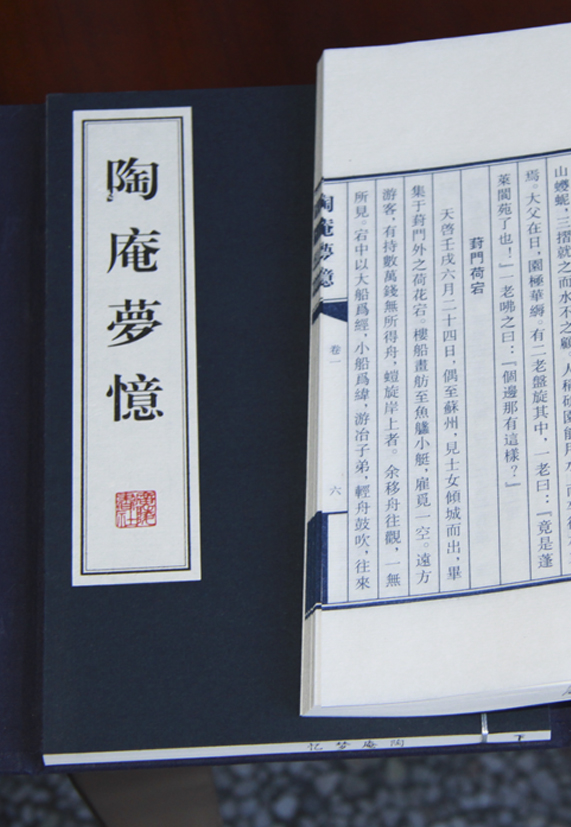 陶庵夢憶
山蠖蜿，三摺就之而水不之顧。人稱硏園能用水，
焉。大父在日，園極華縟。有二老盤旋其中，一老曰：『竟是蓬
萊閬苑了也！』一老咈之曰：『個邊那有這樣？』
葑門荷宕
天啓壬戌六月二十四日，偶至蘇州，見士女傾城而出，畢
集于葑門外之荷花宕。樓船畫舫至魚艖小艇，雇覓一空。遠方
游客，有持數萬錢無所得舟，蟻旋岸上者。余移舟往觀，一無
所見。宕中以大船爲經，小船爲緯，游冶子弟，輕舟鼓吹，往來
陶庵夢憶
卷一
六
陶庵梦忆
下